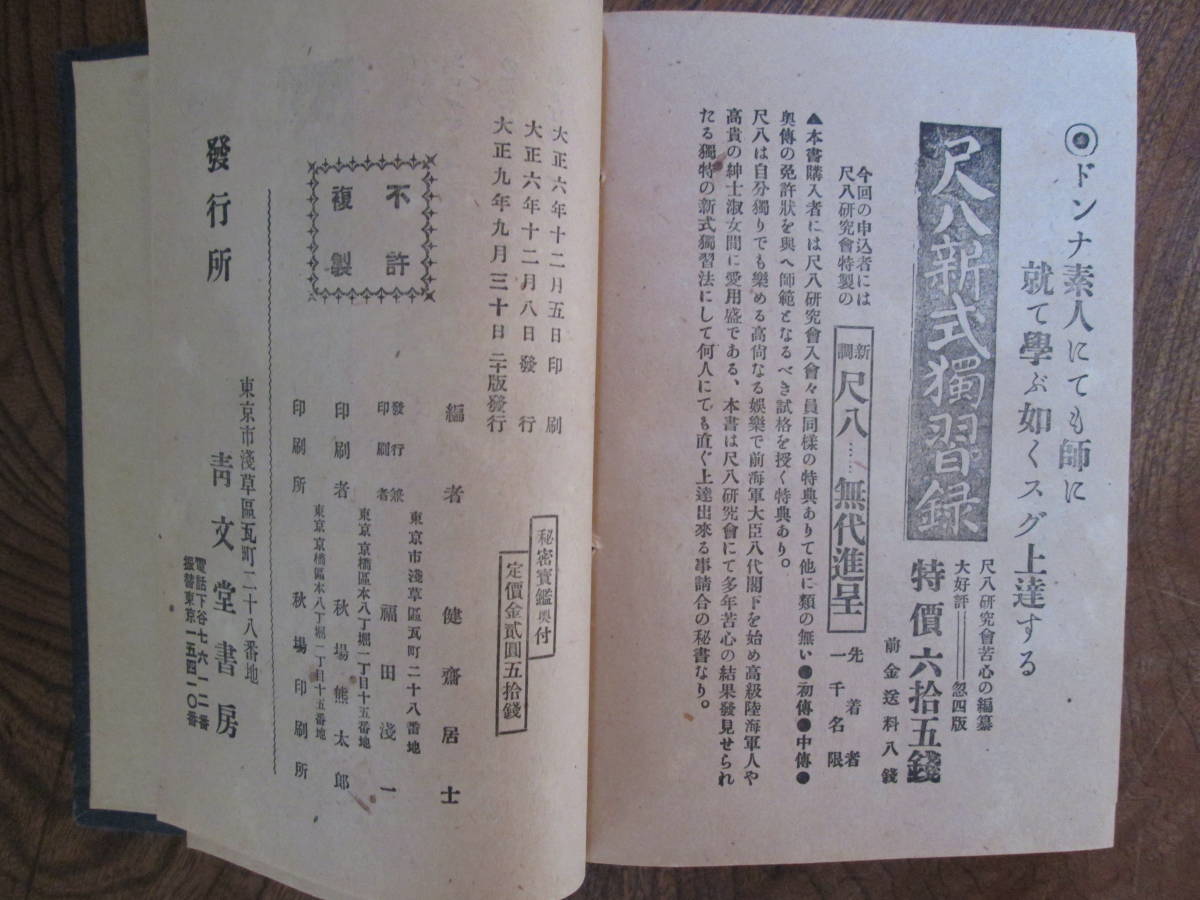 ◉ドンナ素人にても師に
就て學ぶ如くスグ上達する
尺八新式獨習録
尺八研究會苦心の編纂
大好評＝＝忽四版
特價六拾五錢
前金送料八錢
今回の申込者には
尺八研究會特製の
新調
尺八……無代進呈
先着者
一千名限
▲本書購入者には尺八研究會入會々員同樣の特典ありて他に類の無い●初傳●中傳●
奧傳の免許狀を與へ師範となるべき試格を授く特典あり。
尺八は自分獨りでも樂める高尙なる娛樂で前海軍大臣八代閣下を始め高級陸海軍人や
高貴の紳士淑女間に愛用盛である、本書は尺八研究會にて多年苦心の結果發見せられ
たる獨特の新式獨習法にして何人にても直ぐ上達出來る事請合の秘書なり。
大正六年十二月五日印刷
大正六年十二月八日發行
大正九年九月三十日二十版發行
秘密寳鑑奧付
定價金貳圓五拾錢
不許
複製
編者 健齋居士
東京市淺草區瓦町二十八番地
發行兼
印刷者
福田淺一
東京京橋區本八丁堀二丁目十五番地
印刷者 秋場熊太郎
東京京橋區本八丁堀二丁目十五番地
印刷所 秋場印刷所
東京市淺草區瓦町二十八番地
發行所 靑文堂書房
電話下谷七六一二番
振替東京一五四一〇番